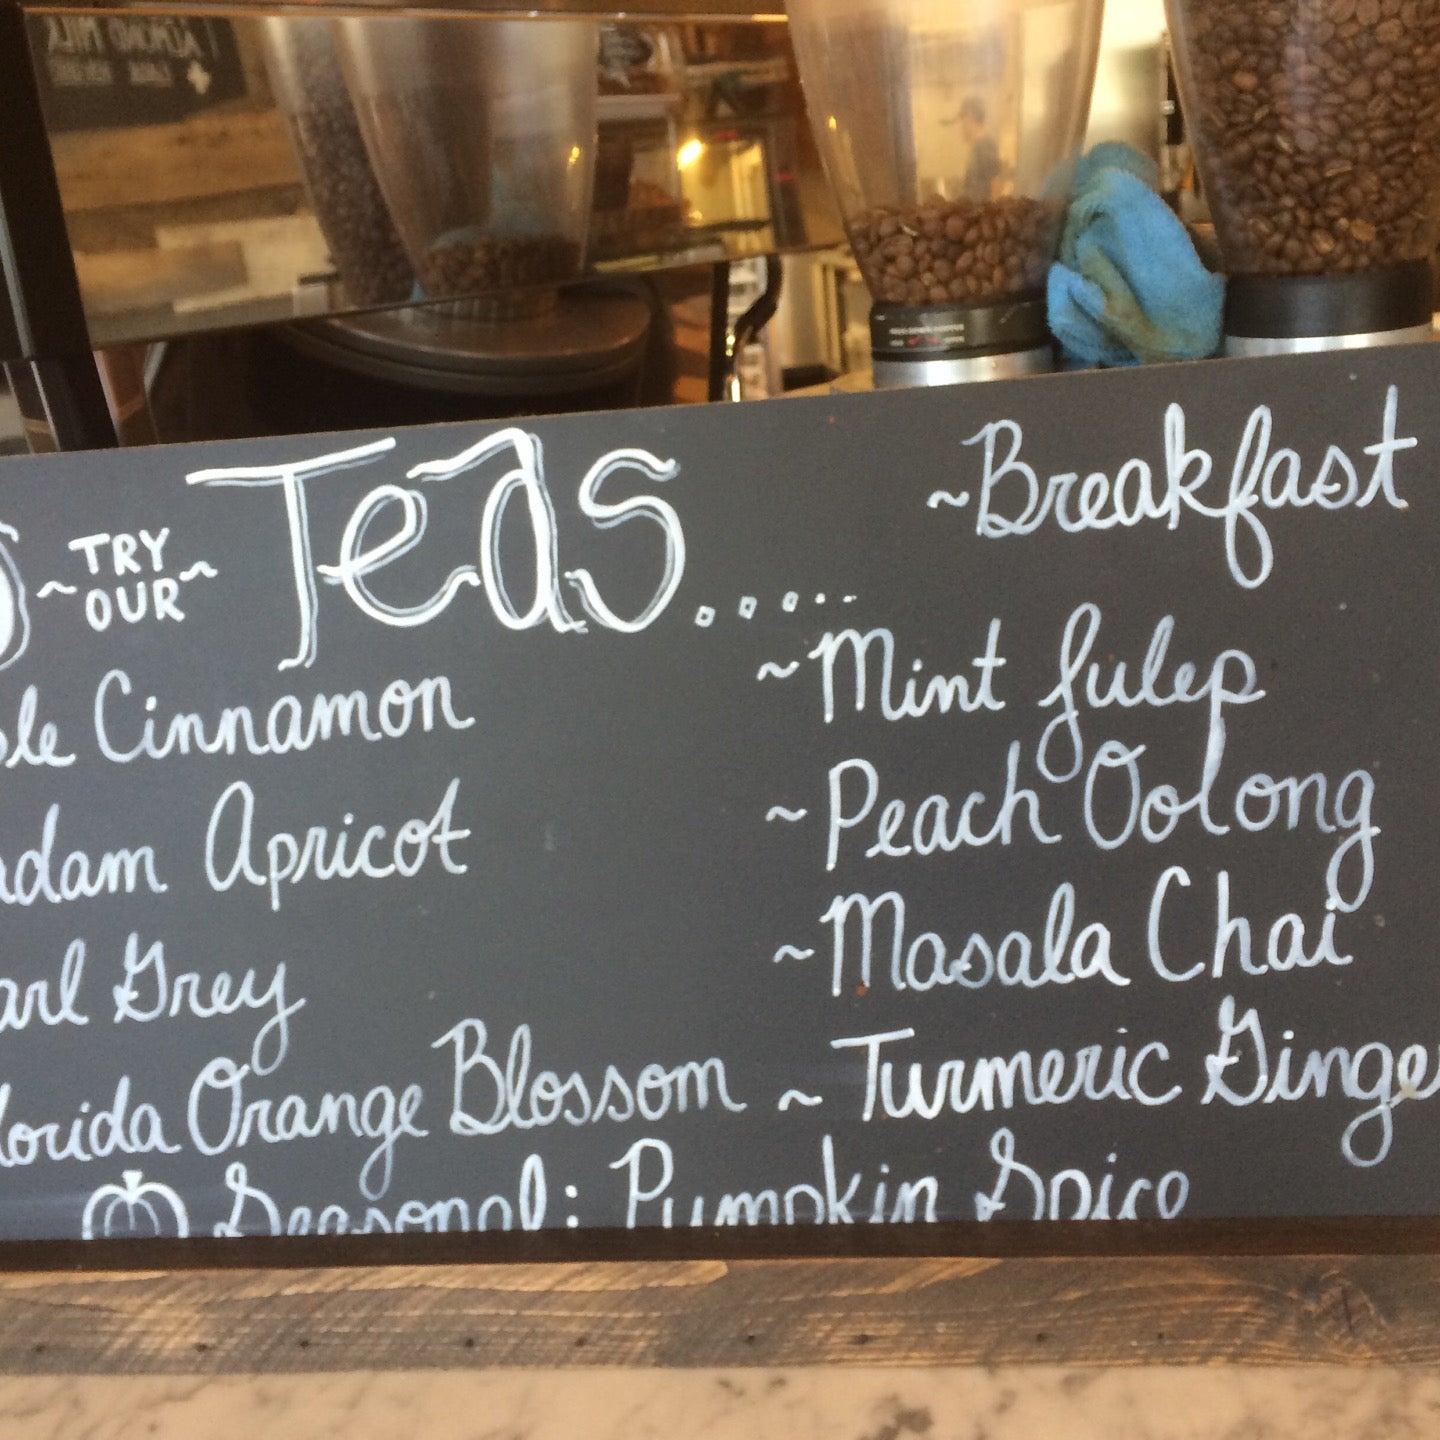 ~ TRY OUR ~ Teas.....
ple Cinnamon
adam Apricot
arl Grey
lorida Orange Blossom
~Breakfast
~Mint Julep
~Peach Oolong
~Masala Chai
~Turmeric Ginger
Seasonal: Pumpkin Spice